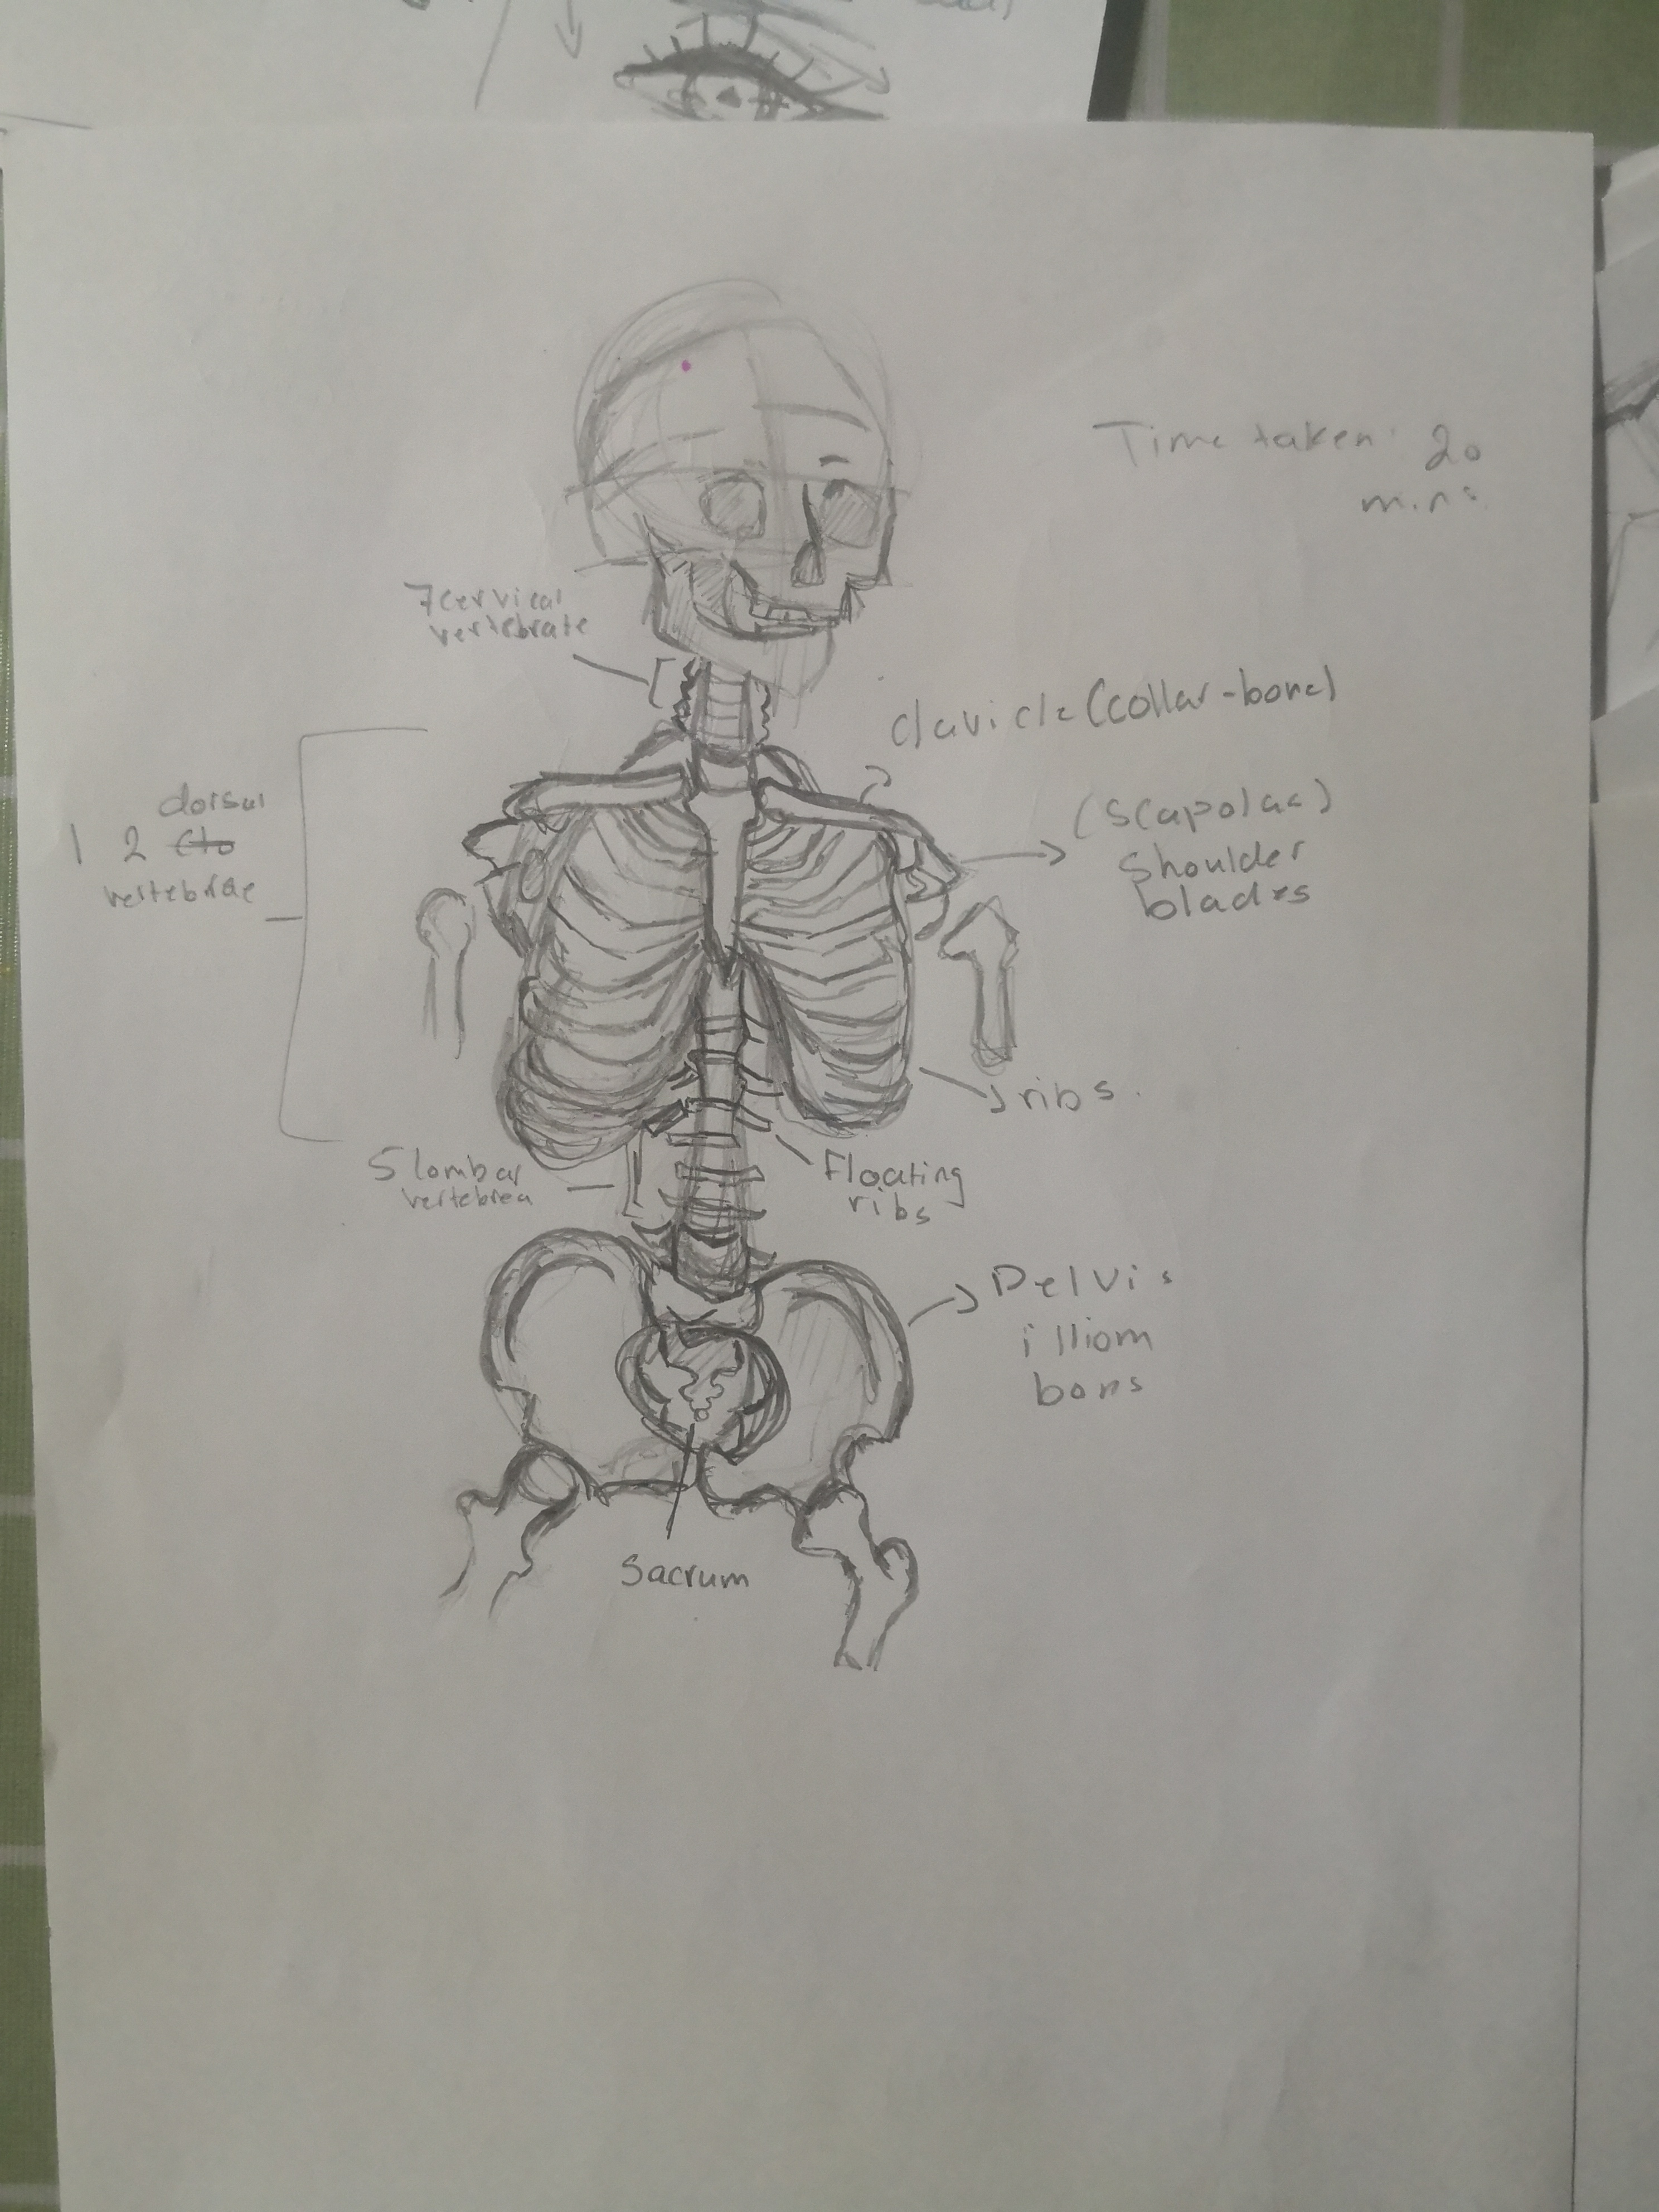 Time taken: 20
mins
7 cervical
vertebrate
clavicle (collar-bone)
dorsal
12
vertebrae
(scapolae)
shoulder
blades
ribs.
5 lombar
vertebrea
Floating
ribs
Pelvis
illiom
bons
Sacrum